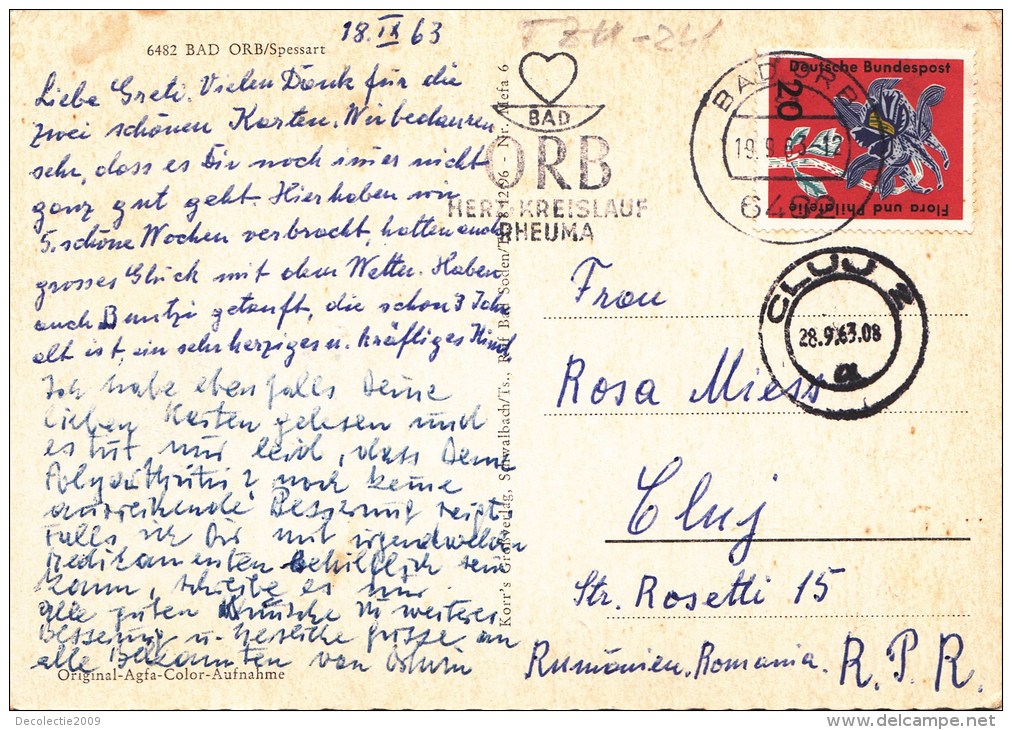 18.IX 63
6482 BAD ORB/Spessart
Liebe Greti. Vielen Dank für die
zwei schönen Karten. Wir bedauren
sehr, dass es Dir noch imer nicht
ganz gut geht. Hier haben wir
5. schöne Wochen verbracht, hatten auch
grosses Glück mit dem Wetter. Haben
auch getauft, die schon 3 Jahr
alt ist, ein sehr herziges u. kräftiges Kind
Ich habe ebenfalls Deine
lieben Karten gelesen und
es tut mir leid, dass Deine
Polyarthritis noch keine
ausreichende Besserung zeigt.
Falls ich Dir mit irgendwelchen
Medikamenten behilflich sein
kann, schreibe es mir
alle guten Wünsche zu weiterer
Besserung u. herzliche Grüsse an
alle Bekannten von
Original-Agfa-Color-Aufnahme
Korr's Großverlag, Schwalbach/Ts., Ruf Bad Soden/Ts. 8 12 96 - Nr. Hefa 6
BAD
ORB
HERZ-KREISLAUF
RHEUMA
BAD ORB
19.9.63-12
6482
Deutsche Bundespost
20
Flora und Philatelie
CLUJ 2
28.9.63.08
a
Frau
Rosa Miess
Cluj
Str. Rosetti 15
Rumänien, Romania. R. P. R.
Decolectie2009
delcampe.net